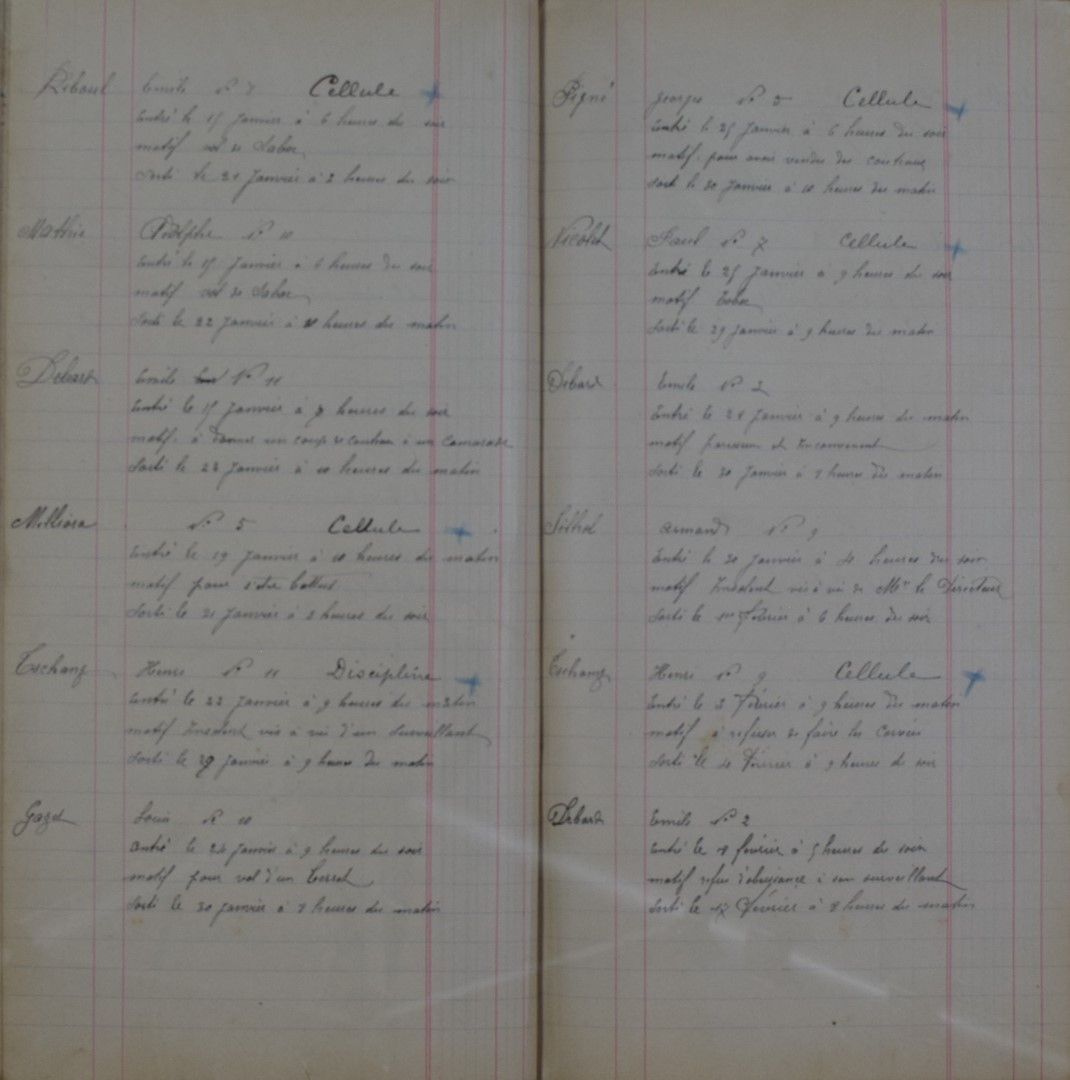 Reboul Emile N° 7 Cellule
Entré le 15 Janvier à 6 heures du soir
motif vol de Tabac
Sorti le 21 Janvier à 2 heures du soir
Mathieu Adolphe N° 10
Entré le 15 Janvier à 6 heures du soir
motif vol de Tabac
Sorti le 22 Janvier à heures du matin
Debard Emile N° 11
Entré le 15 Janvier à heures du soir
motif. à donner un coup de couteau à un camarade
Sorti le 23 Janvier à 10 heures du matin
N° 5 Cellule
Entré le 19 Janvier à 10 heures du matin
motif pour s'etre battus
Sorti le 21 Janvier à 2 heures du soir
Eschang Henri N° 11 Discipline
Entré le 22 Janvier à 9 heures du matin
motif Insolent vis à vis d'un Surveillant
Sorti le 29 janvier à 9 heures du matin
Gazel Louis N° 10
Entré le 24 Janvier à 9 heures du soir
motif pour vol d'un
Sorti le 30 janvier à heures du matin
Pigné georges N° 5 Cellule
Entré le 25 Janvier à 6 heures du soir
motif. pour avoir vendu des couteaux
Sorti le 30 Janvier à 10 heures du matin
Nicolet Paul N° 7 Cellule
Entré le 25 Janvier à 9 heures du soir
motif
Sorti le 29 Janvier à 9 heures du matin
Debard Emile N° 2
Entré le 28 Janvier à 9 heures du matin
motif paresseux et
Sorti le 30 Janvier à heures du matin
armand N° 9
Entré le 30 Janvier à heures du soir
motif Insolent vis à vis de Mr le Directeur
Sorti le 1er février à 6 heures du soir
Eschang Henri N° 9 Cellule
Entré le 2 Février à 9 heures du matin
motif à refuser de faire les Corvées
Sorti le 10 Février à 9 heures du soir
Debard Emile N° 2
Entré le février à 5 heures du soir
motif refus d'obeissance à son surveillant
Sorti le 17 Février à 8 heures du matin